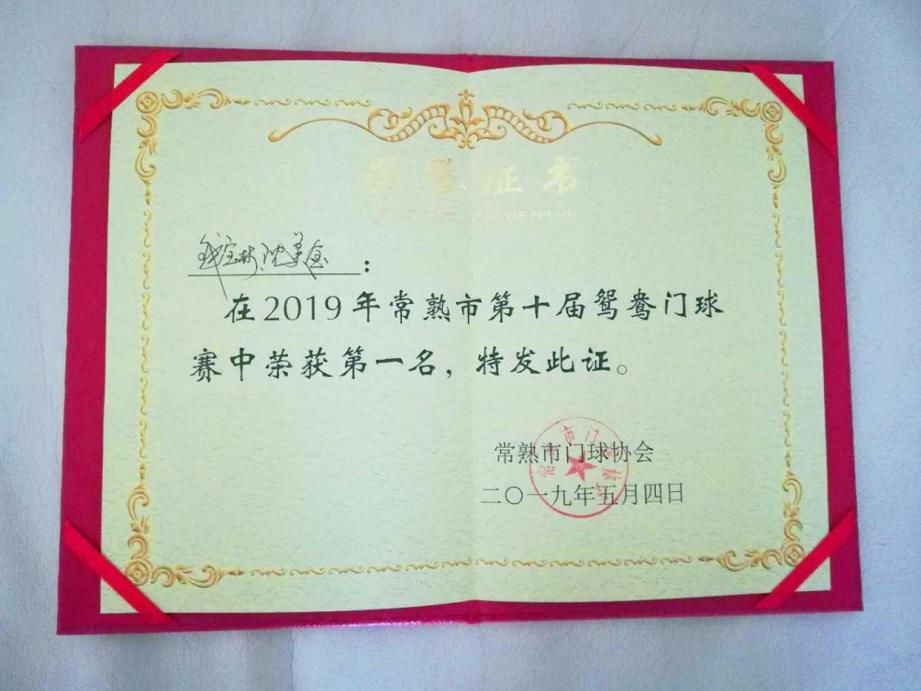 荣誉证书
钱宝林、沈美金：
在2019年常熟市第十届鸳鸯门球
赛中荣获第一名，特发此证。
常熟市门球协会
二〇一九年五月四日